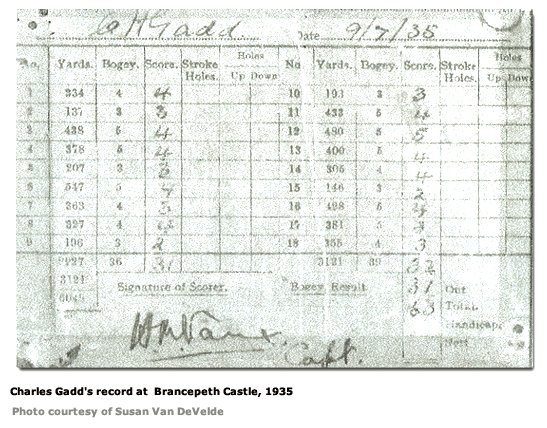 C H Gadd. Date 9/7/35
Holes Holes
No. Yards. Bogey. Score. Stroke Holes. Up Down No Yards. Bogey. Score. Stroke Holes. Up Down
1 334 4 4 10 193 3 3
2 137 3 3 11 433 5 4
3 438 5 4 12 480 5 5
4 378 5 4 13 400 5 4
5 207 3 3 14 395 4 4
6 547 5 4 15 146 3 2
7 363 4 3 16 498 5 4
8 327 4 3 17 381 5 3
9 196 3 2 18 355 4 3
36 31 3121 39 32
3121 Signature of Scorer. Bogey Result 31 Out
63 Total
Handicap
Nett
Capt.
Charles Gadd's record at Brancepeth Castle, 1935
Photo courtesy of Susan Van DeVelde